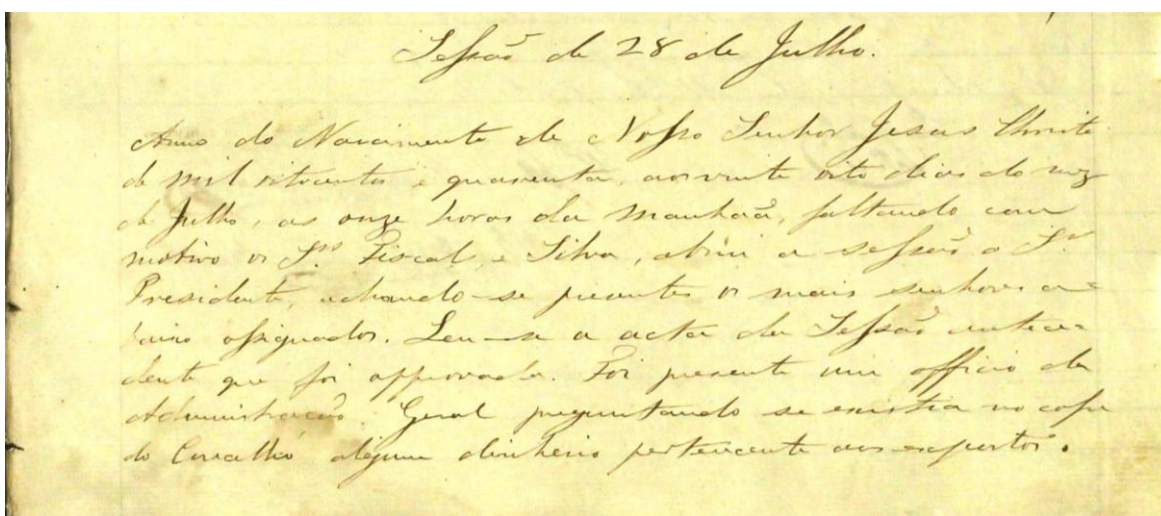 Sessão de 28 de Julho.
Anno do Nascimento de Nosso Senhor Jesus Christo
de mil oitocentos e quarenta, aos vinte oito dias do mez
de Julho, as onze horas da manhaã, faltando com
motivo os Srs Fiscal, e Silva, abriu a sessão o Sr
Presidente, achando-se presentes os mais senhores a-
baixo assignados. Leu-se a acta da Sessão antece-
dente que foi approvada. Foi presente um officio da
Administracão Geral preguntando se existia no cofre
do Concelho algum dinheiro pertencente aos expostos.